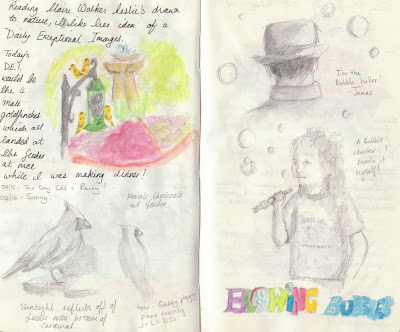 Reading Claire Walker Leslie's drawn
to nature, I like her idea of a
"Daily Exceptional Images.
Today's
D.E.I.
would be
the 4
male
goldfinches
which all
landed at
the feeder
at once
while I was making dinner!
Day Cold + Rainy
Sunny.
Female Cardinals
at Feeder
Sunlight reflects off of
onto bottom of
Cardinal
How Gabby
I'm the
Bubble
James
A Bubble
I made it
myself!
BLOWING BUBBLES